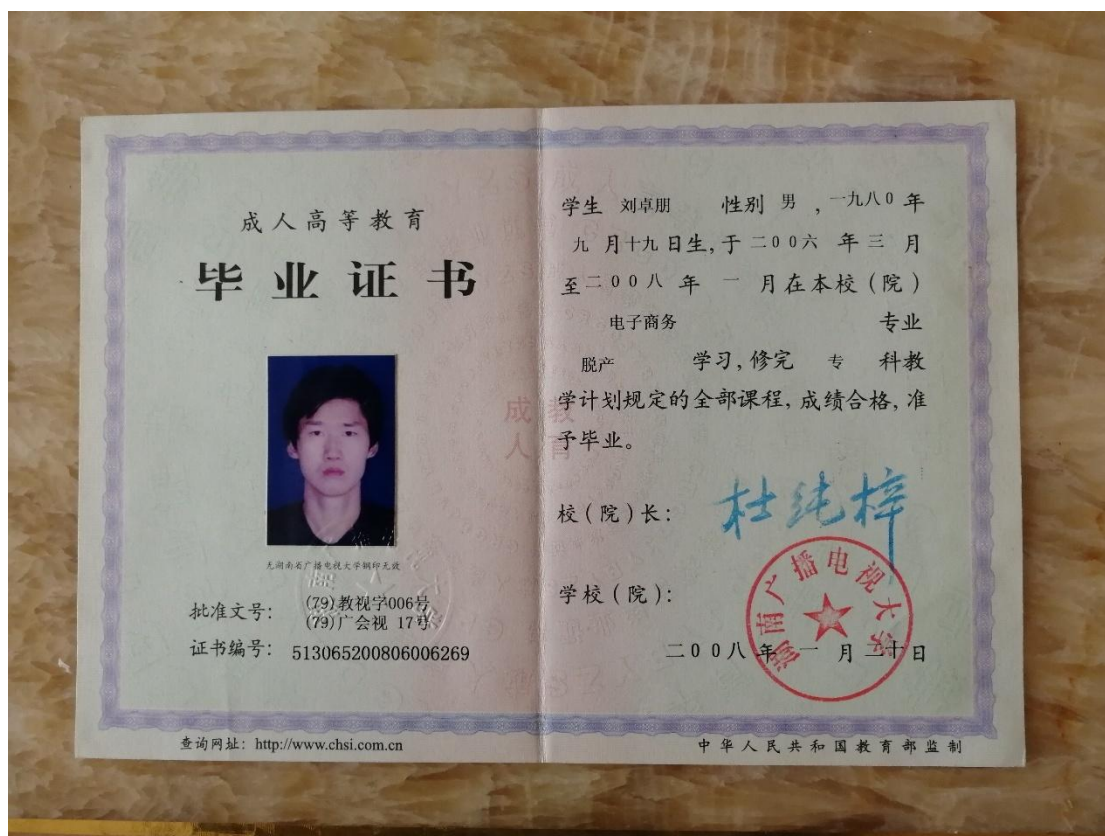 成人高等教育
毕业证书
无湖南省广播电视大学钢印无效
批准文号：
(79)教视字006号
(79)广会视 17号
证书编号： 513065200806006269
查询网址：http://www.chsi.com.cn
学生 刘卓朋 性别 男 ，一九八0 年
九 月十九日生，于二00六 年 三 月
至二00八 年 一 月在本校（院）
电子商务 专业
脱产 学习，修完 专 科教
学计划规定的全部课程，成绩合格，准
予毕业。
成教
人育
校（院）长： 杜纯梓
学校（院）：
湖南广播电视大学
二00八 年 一 月二十日
中华人民共和国教育部监制